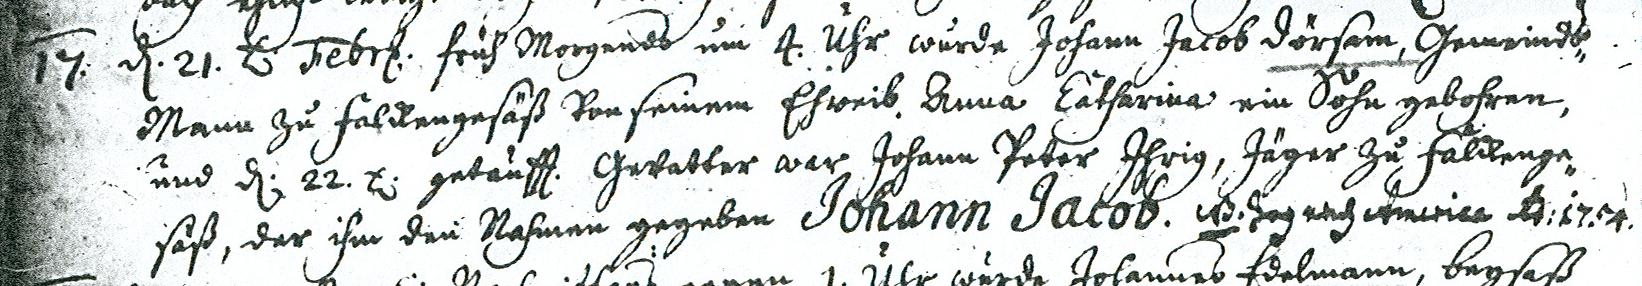 17. d. 21. t. Febr. früh Morgends um 4. Uhr wurde Johann Jacob Dörsam, Gemeinds-
Mann zu Falckengesäß von seinem Eheweib Anna Catharina ein Sohn gebohren,
und d. 22. t. getaufft. Gevatter war Johann Peter Ihrig, Jäger zu Falckenge-
säß, der ihm den Nahmen gegeben Johann Jacob. NB. zog nach America Ad: 1754.
1. Uhr wurde Johannes Edelmann, beysaß